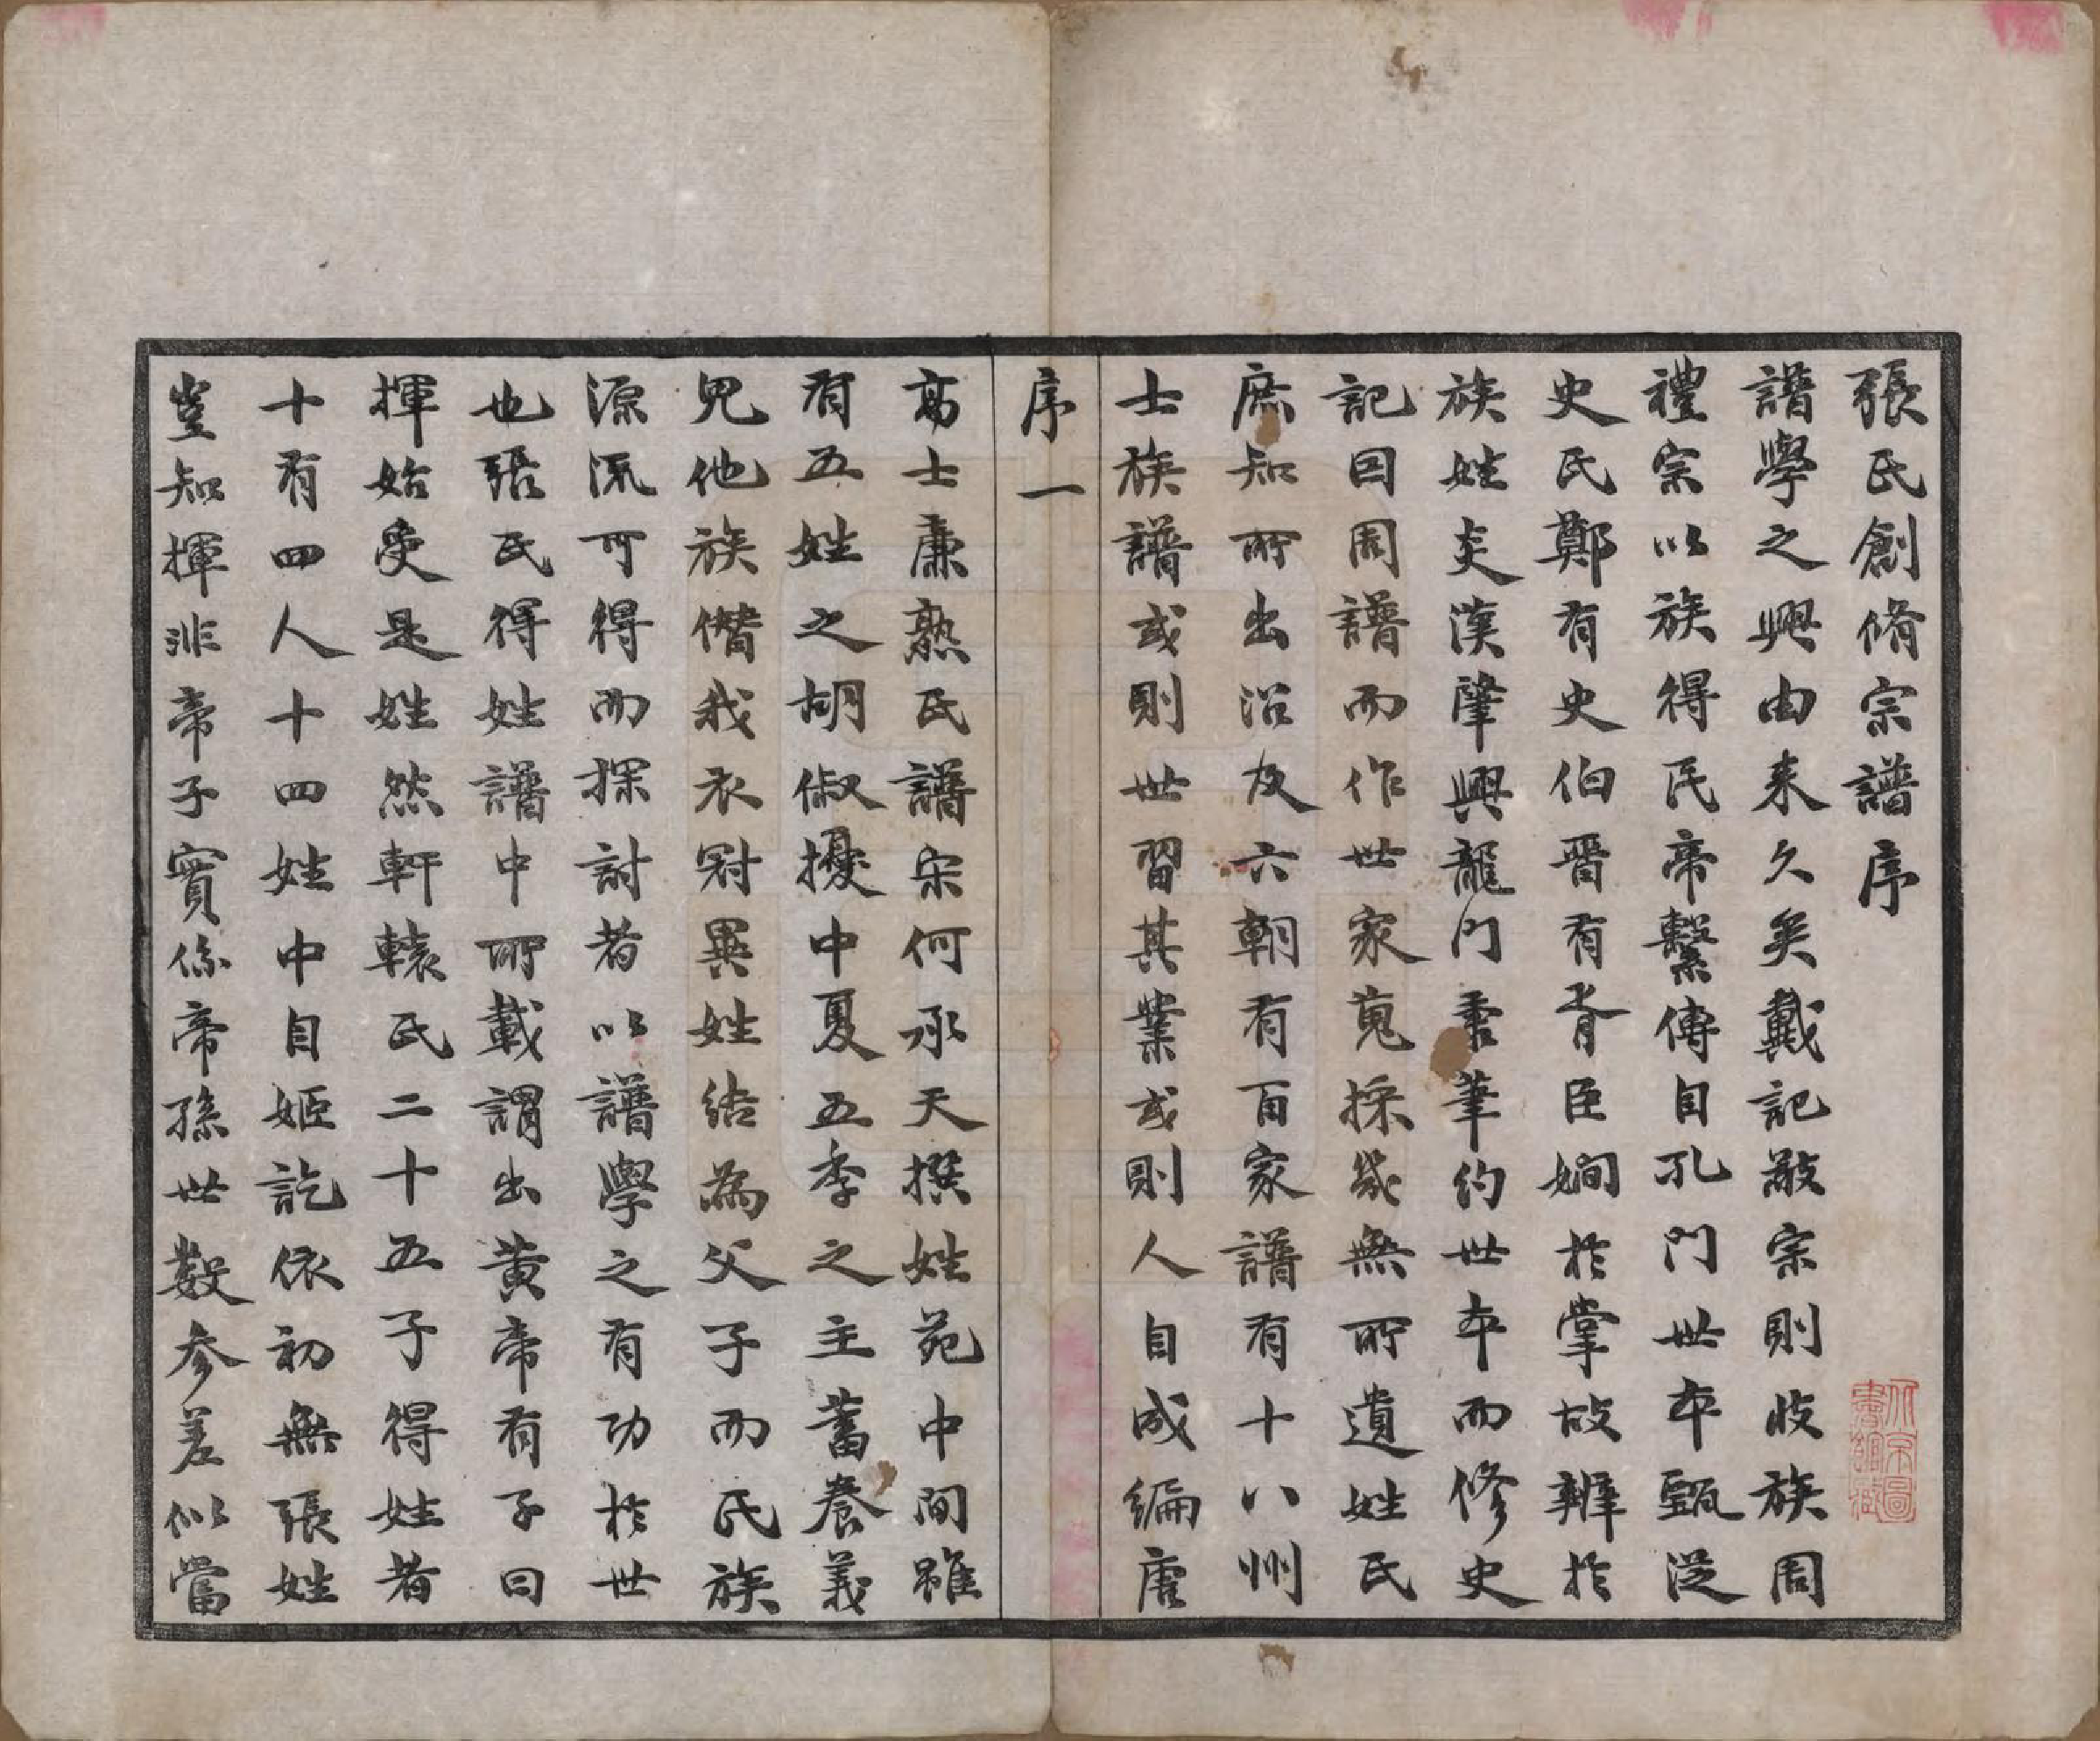 張氏創脩宗譜序
譜學之興由来久矣戴記敬宗則收族周
禮宗以族得民帝繫傳自孔門世本甄從
史氏鄭有史伯晋有胥臣嫻於掌故辨於
族姓炎漢肇興龍門秉筆約世本而修史
記因周譜而作世家蒐採幾無所遺姓氏
庶知所出沿及六朝有百家譜有十八州
士族譜或則世習其業或則人自成編唐
序一
高士廉熟氏譜宋何承天撰姓苑中間雖
有五姓之胡俶擾中夏五季之主蓄養義
兒他族僭我衣冠異姓結為父子而氏族
源流可得而探討者以譜學之有功於世
也張氏得姓譜中所載謂出黄帝有子曰
揮始受是姓然軒轅氏二十五子得姓者
十有四人十四姓中自姬訖依初無張姓
豈知揮非帝子實係帝孫世數参差似當